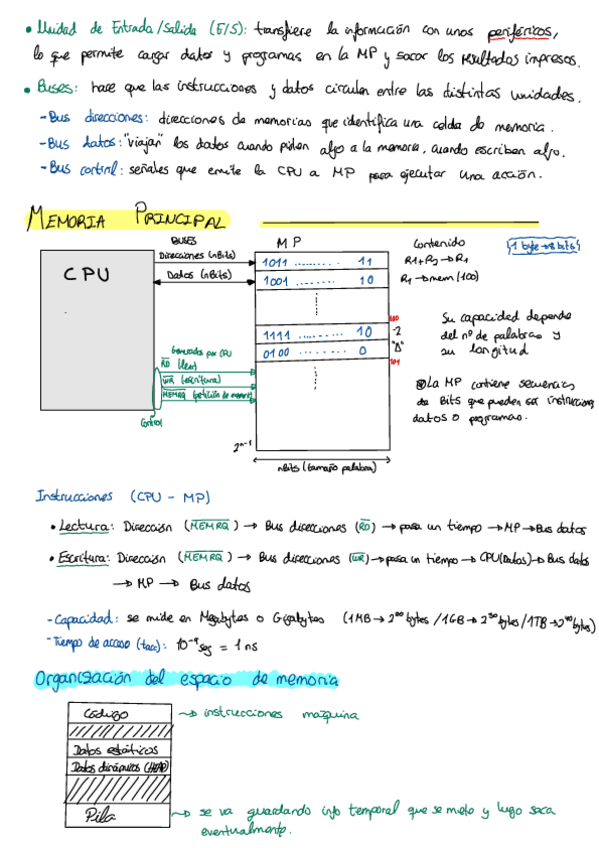 • Unidad de Entrada/Salida (E/S): transfiere la información con unos periféricos,
lo que permite cargar datos y programas en la MP y sacar los resultados impresos.
• Buses: hace que las instrucciones y datos circulen entre las distintas unidades.
- Bus direcciones: direcciones de memorias que identifica una celda de memoria.
- Bus datos: "viajan" los datos cuando piden algo a la memoria, cuando escriben algo.
- Bus control: señales que emite la CPU a MP para ejecutar una acción.
MEMORIA PRINCIPAL
BUSES
MP
Contenido
1 byte → 8 bits
CPU
Direcciones (nBits)
1011 ......... 11
R1+R2 → R1
Datos (nBits)
1001 ........ 10
R1 → mem (100)
100
Su capacidad depende
1111 ........ 10
-2
del nº de palabras y
0100 ........ 0
"Δ"
su longitud
101
Generados por CPU
RD (leer)
WR (escritura)
MEMRQ (petición de memoria)
Control
La MP contiene secuencias
de Bits que pueden ser instrucciones
datos o programas.
2ⁿ⁻¹
nBits (tamaño palabra)
Instrucciones (CPU - MP)
• Lectura: Dirección (MEMRQ) → Bus direcciones (RD) → pasa un tiempo → MP → Bus datos
• Escritura: Dirección (MEMRQ) → Bus direcciones (WR) → pasa un tiempo → CPU (Datos) → Bus datos
→ MP → Bus datos
- Capacidad: se mide en Megabytes o Gigabytes (1MB → 2²⁰ bytes / 1GB → 2³⁰ bytes / 1TB → 2⁴⁰ bytes)
- Tiempo de acceso (tacc): 10⁻⁹ seg = 1 ns
Organización del espacio de memoria
Código → instrucciones maquina
Datos estáticos
Datos dinámicos (HEAP)
Pila → se va guardando info temporal que se mete y lugo saca
eventualmente.